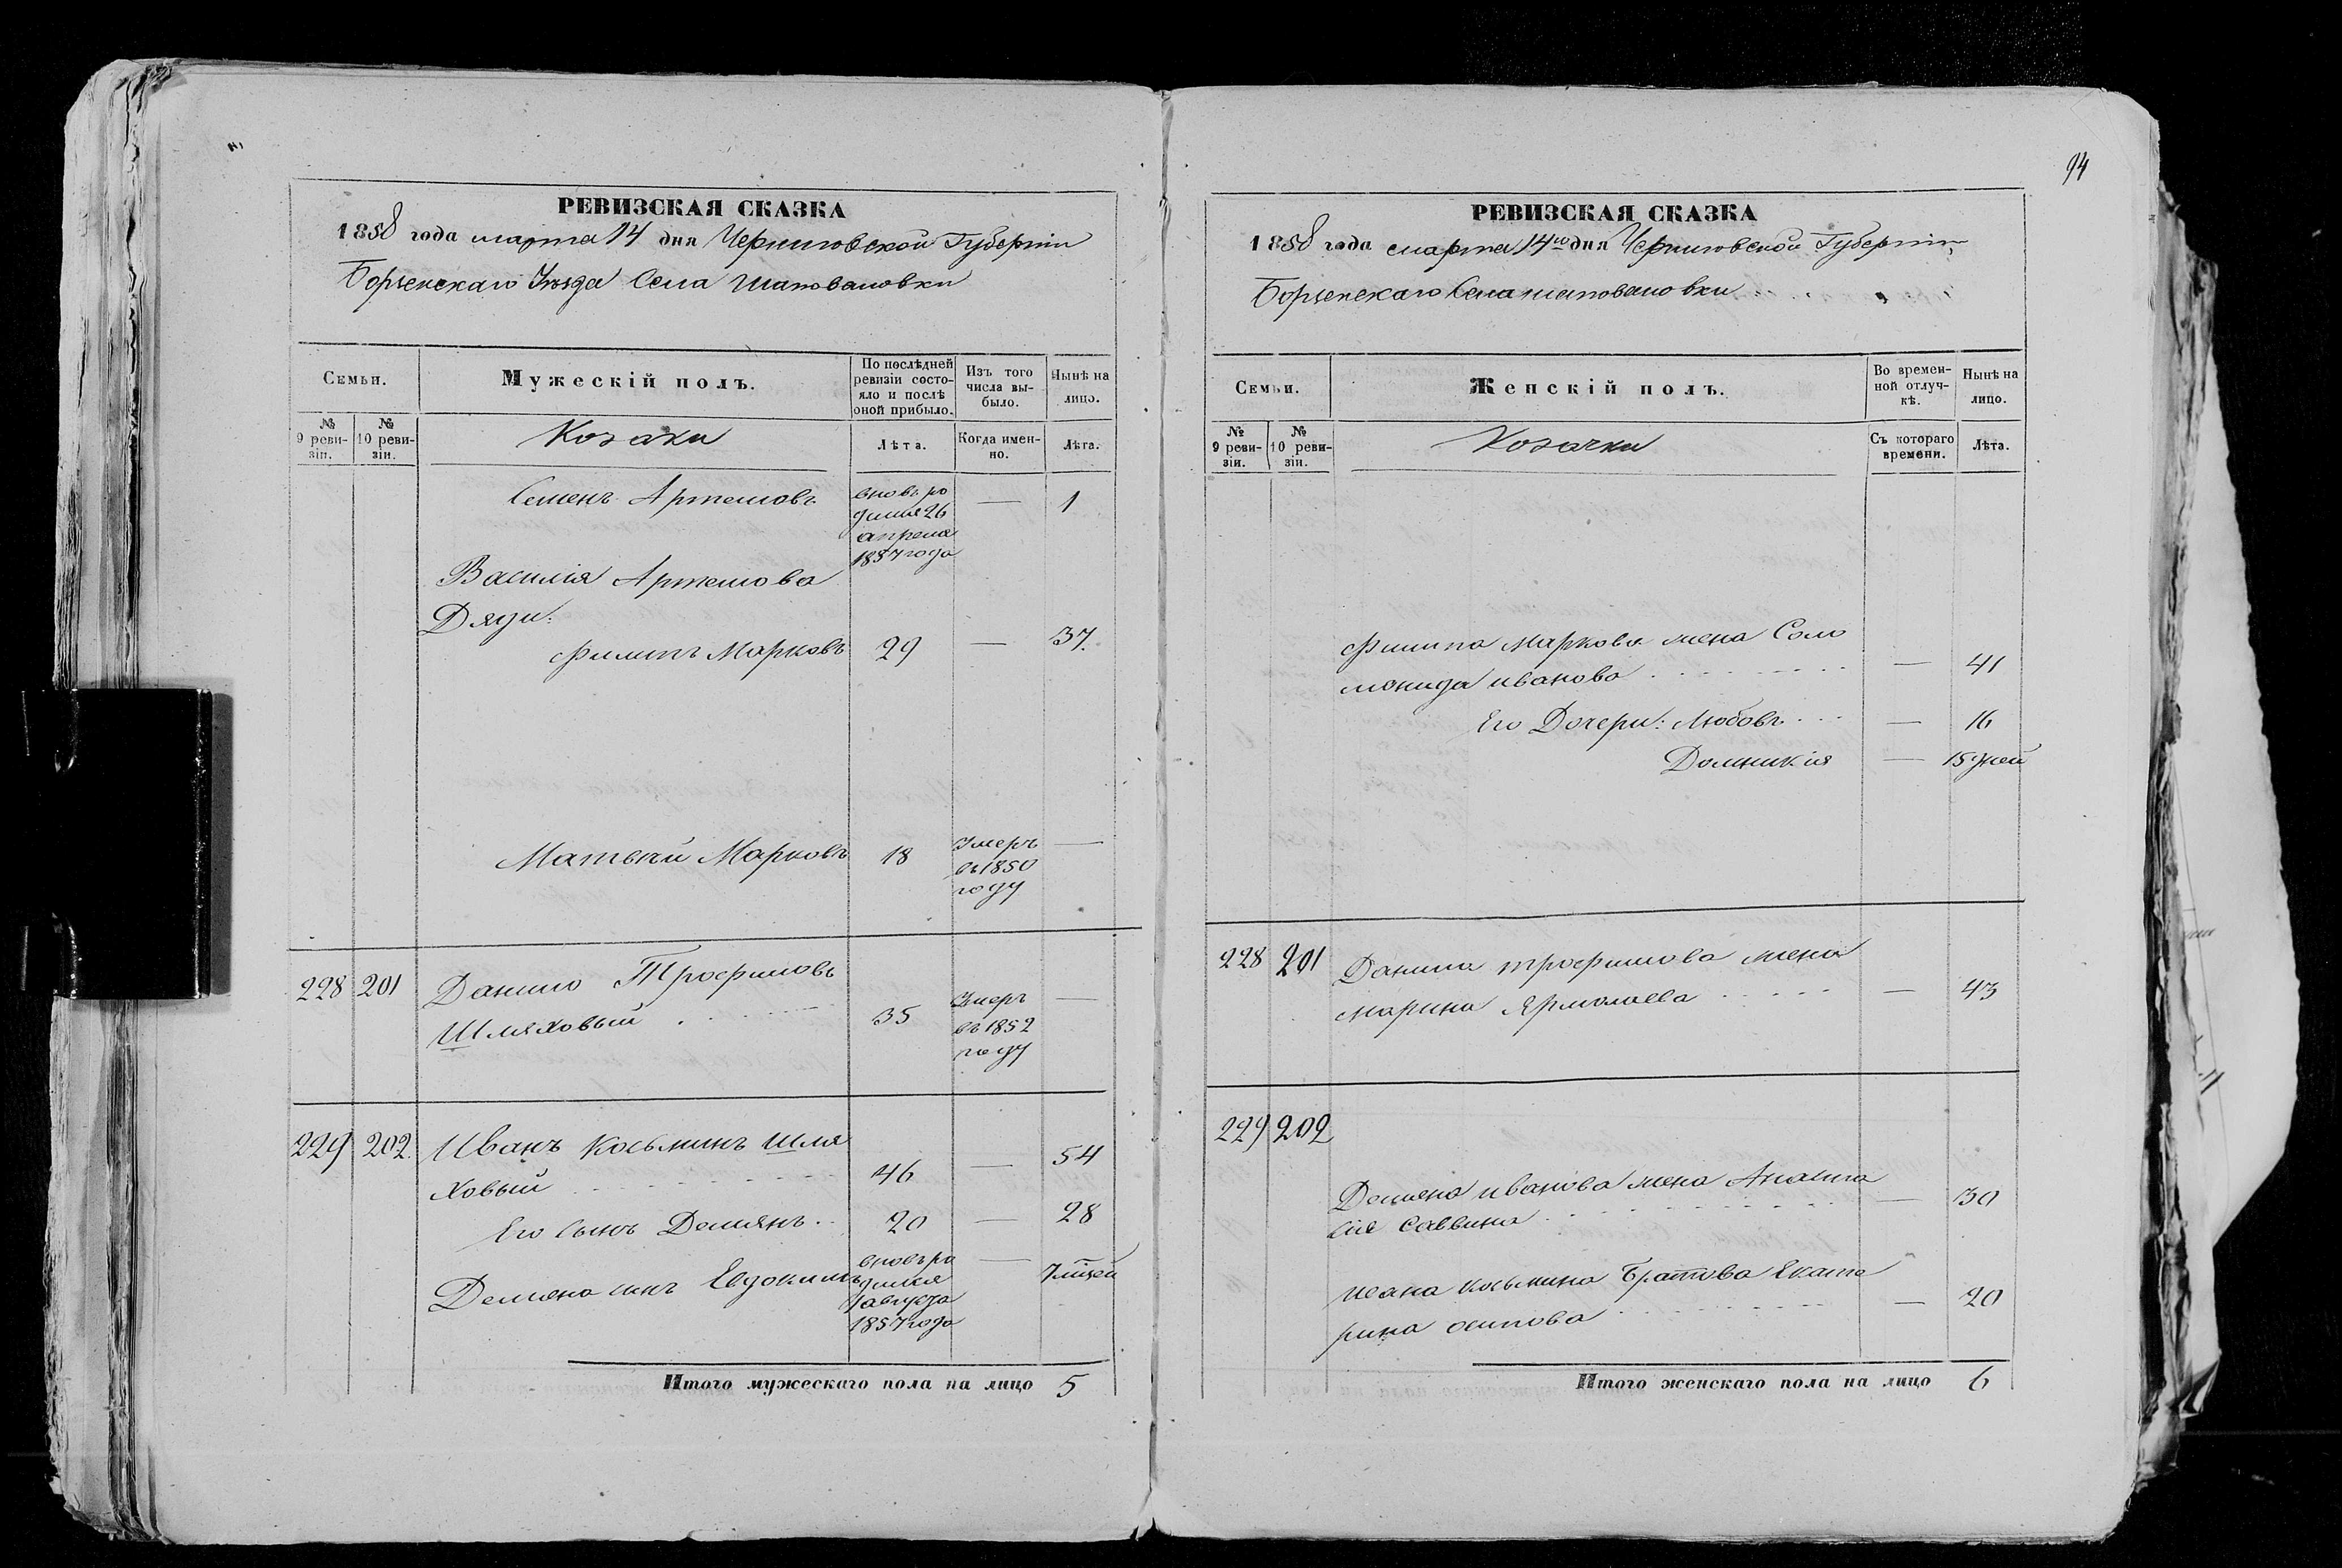 РЕВИЗСКАЯ СКАЗКА
1858 года марта 14 дня Черниговской Губернии
Борзенскаго Уезда Села Шаповаловки
Семьи.
Мужескій полъ.
По послѣдней ревизіи состояло и послѣ оной прибыло.
Изъ того числа выбыло.
Нынѣ на лицо.
№ 9 ревизіи.
№ 10 ревизіи.
Козаки
Лѣта.
Когда именно.
Лѣта.
Семенъ Артемовъ
вновь ро
дился 26
апреля
1857 года
— 1
Василія Артемова
Дяди:
Филипъ Марковъ 29 — 37.
Матвѣй Марковъ 18
Умеръ
въ 1850
году
—
228 201 Данило Трофимовъ
Шляховый 35
Умеръ
въ 1852
году
—
229 202. Иванъ Косьминъ Шля
ховый 46 — 54
Его сынъ Демянъ 20 — 28
Демяна сынъ Евдокимъ
вновь ро
дился
1 августа
1857 года
— 7 мцей
Итого мужескаго пола на лицо 5
94
РЕВИЗСКАЯ СКАЗКА
1858 года марта 14го дня Черниговской Губернии
Борзенскаго Села шаповаловки
Семьи.
Женскій полъ.
Во временной отлучкѣ.
Нынѣ на лицо.
№ 9 ревизіи.
№ 10 ревизіи.
Козачки
Съ котораго времени.
Лѣта.
Филипа Маркова жена Соло
монида иванова — 41
Его Дочери: Любовь — 16
Домникія — 15 дней
228 201 Данила трофимова жена
марина Ярмолаева — 43
229 202
Демяна иванова жена Анаста
сія Саввина — 30
ивана косьмина Братова Екате
рина осипова — 20
Итого женскаго пола на лицо 6